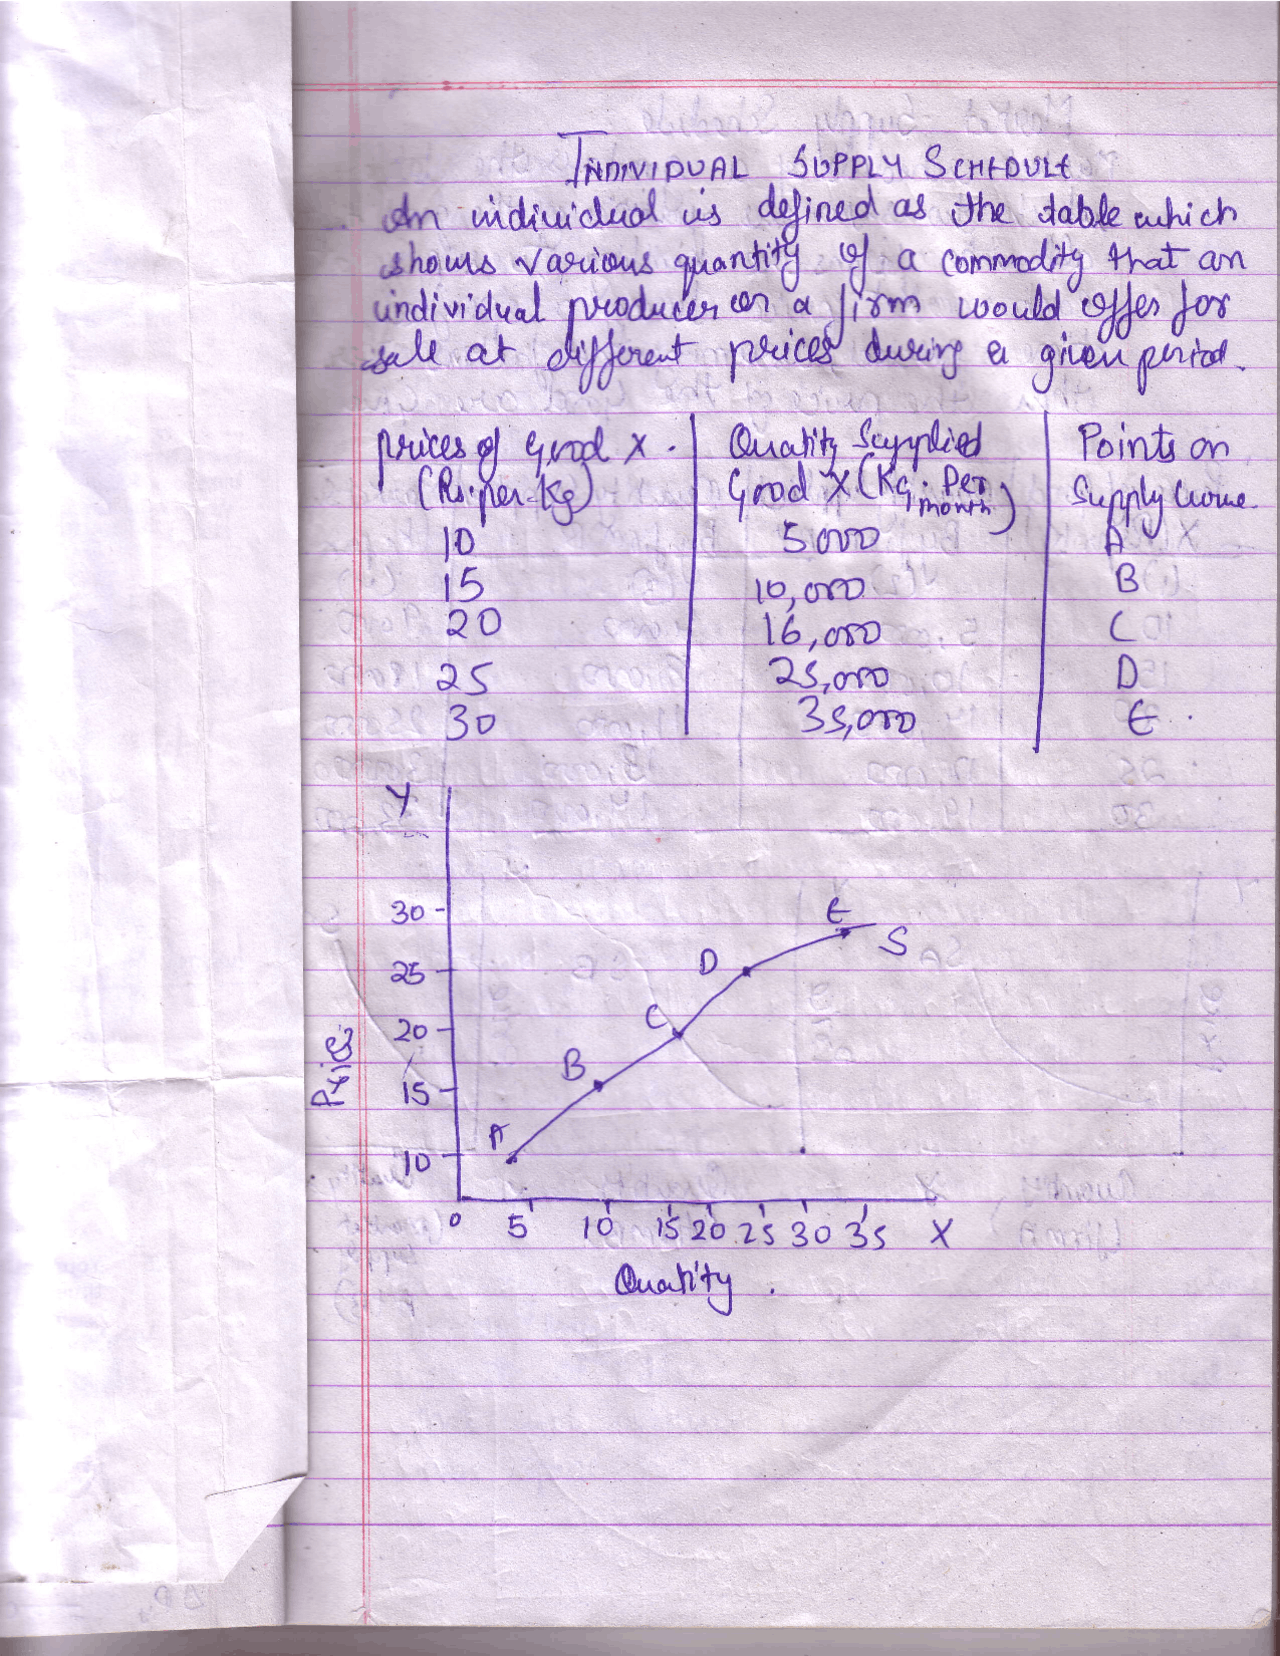 INDIVIDUAL SUPPLY SCHEDULE
An individual is defined as the table which
shows various quantity of a commodity that an
individual producer or a firm would offer for
sale at different prices during a given period.
prices of Good X. Quatity Supplied Points on
(Rs. per. Kg) Good X (Kg. Per month) Supply Curve
10 5000 A
15 10,000 B
20 16,000 C
25 25,000 D
30 35,000 E
Y
30
E
S
25
D
20
C
Price
B
15
A
10
0 5 10 15 20 25 30 35 X
Quatity.